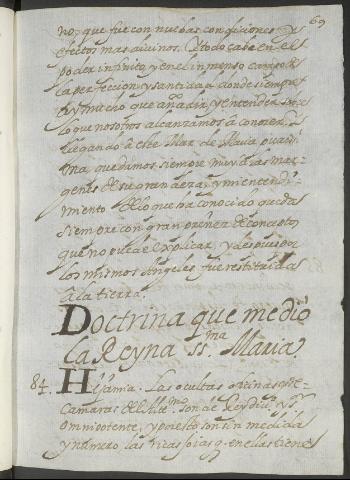 69
no, que fue con nuebas condiciones y
efectos mas divinos. Todo cabe en el
poder infinito, y en el inmenso campo de
la perfeccion, y santidad, donde siempre
ay mucho que añadir, y entender sobre
lo que nosotros alcanzamos a conocer.
llegando a este Mar de Maria
siempre muy a las mar-
genes de su grandeza, y mi entendi-
miento de lo que ha conocido queda
siempre con gran preñez de conceptos
que no puede explicar, y despues por
los mismos Angeles fue restituida
à la tierra.
Doctrina que me dió
la Reyna SS.ma Maria.
84. Hija mia. Las ocultas oficinas, y re-
camaras del Altmo. son de Rey divino, y Sr.
omnipotente, y por esto son sin medida
y numero las ricas joias q. en ellas tiene